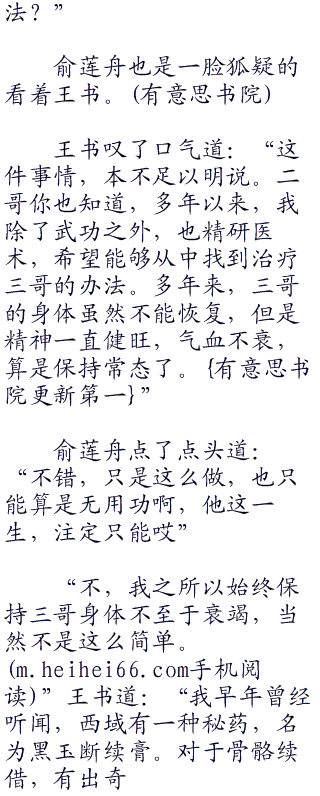 法？”
俞莲舟也是一脸狐疑的
看着王书。(有意思书院)
王书叹了口气道：“这
件事情，本不足以明说。二
哥你也知道，多年以来，我
除了武功之外，也精研医
术，希望能够从中找到治疗
三哥的办法。多年来，三哥
的身体虽然不能恢复，但是
精神一直健旺，气血不衰，
算是保持常态了。{有意思书
院更新第一}”
俞莲舟点了点头道：
“不错，只是这么做，也只
能算是无用功啊，他这一
生，注定只能哎”
“不，我之所以始终保
持三哥身体不至于衰竭，当
然不是这么简单。
(m.heihei66.com手机阅
读)”王书道：“我早年曾经
听闻，西域有一种秘药，名
为黑玉断续膏。对于骨骼续
借，有出奇